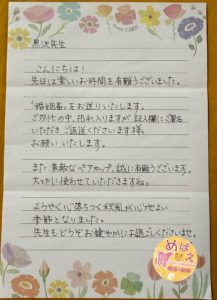 黒沢先生
こんにちは!
先日は楽しいお時間を有難うございました。
"婚姻届"をお送りいたします。
ご多忙の中、恐れ入りますが証人欄にご署名
いただき ご返送くださいます様、
お願いいたします。
また、素敵なペアカップ、誠に有難うございます。
大切に使わせていただきますね。
ようやく心落ちつく秋風が心地よい
季節となりました。
先生もどうぞお健やかにお過ごしくださいませ。
めばえ